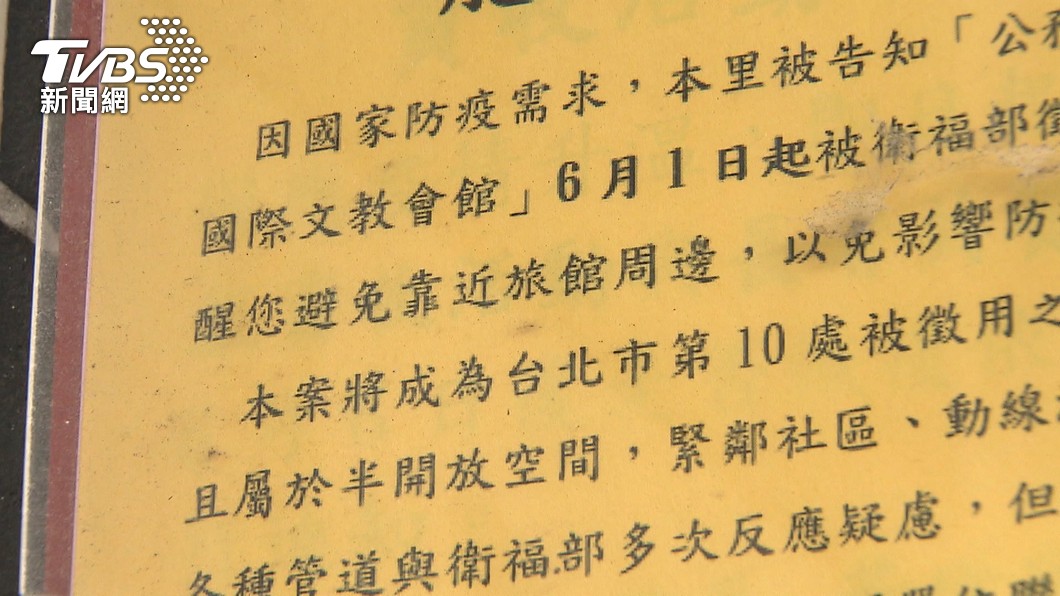 TVBS
新聞網
因國家防疫需求，本里被告知「公
國際文教會館」6月1日起被衛福部
醒您避免靠近旅館周邊，以免影響防
本案將成為台北市第10處被徵用之
且屬於半開放空間，緊鄰社區、動線
各種管道與衛福部多次反應疑慮，但